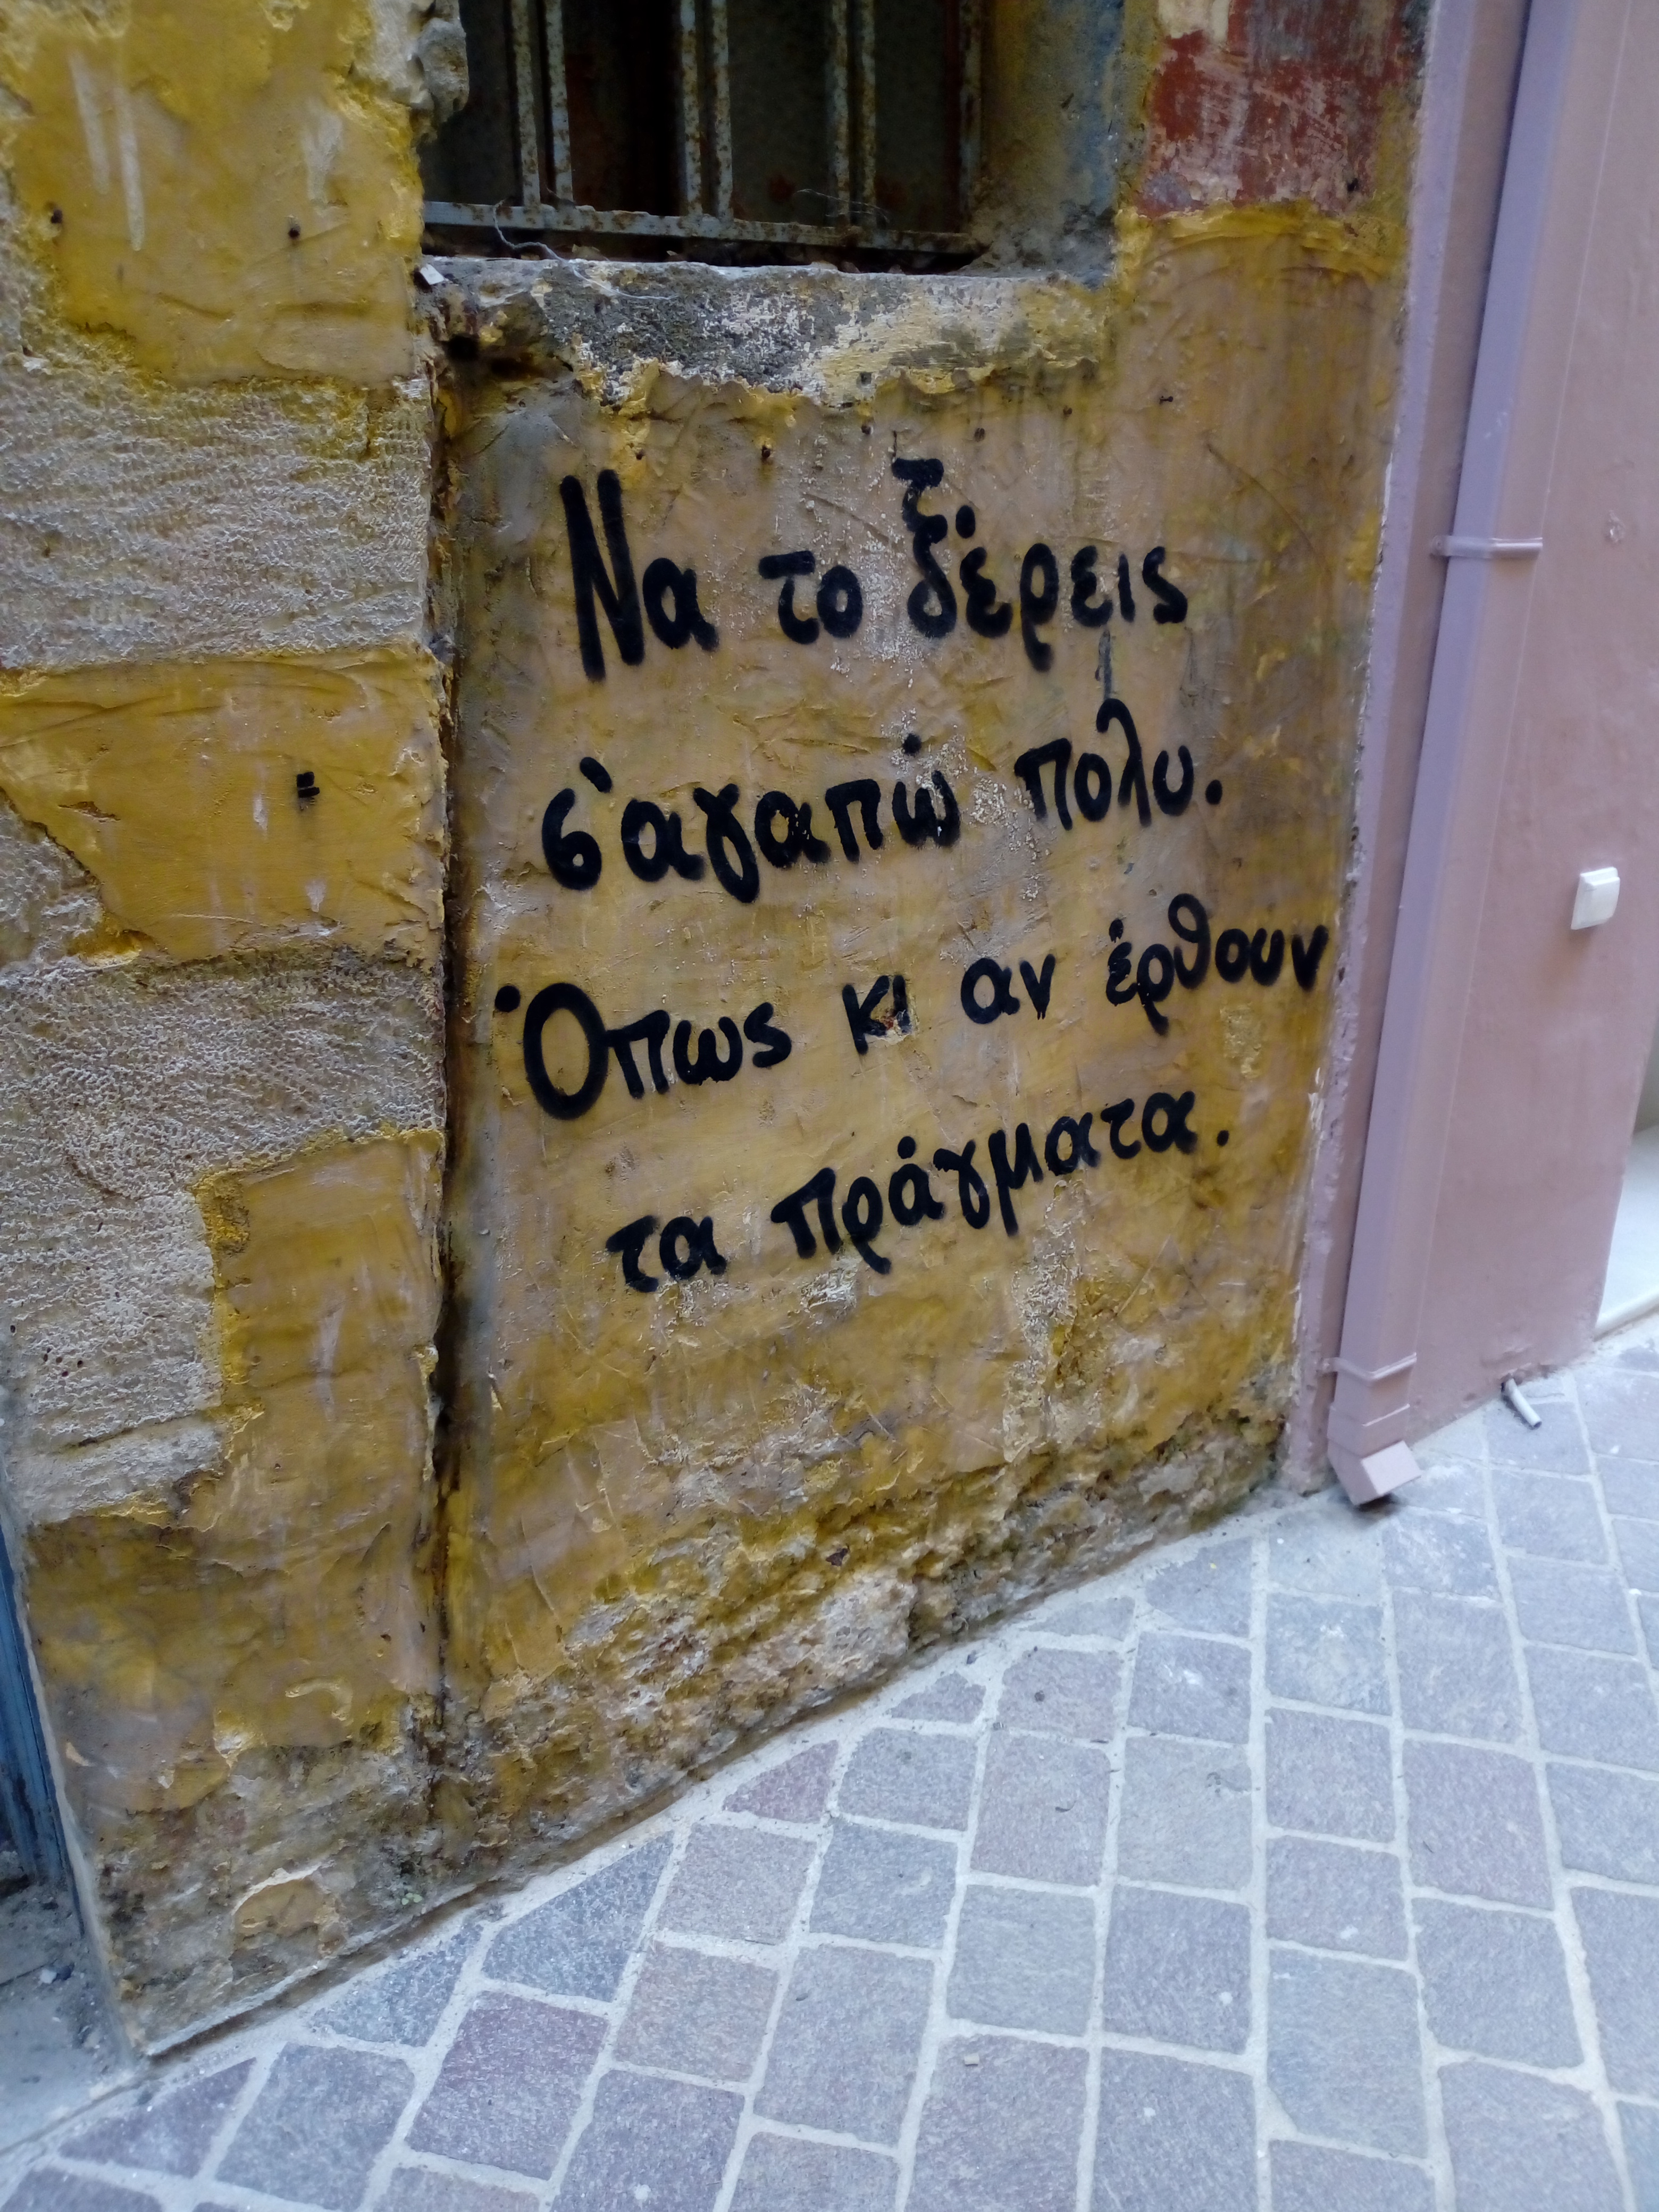 Να το ξέρεις
σ'αγαπώ πολυ.
Όπως κι αν έρθουν
τα πράγματα.